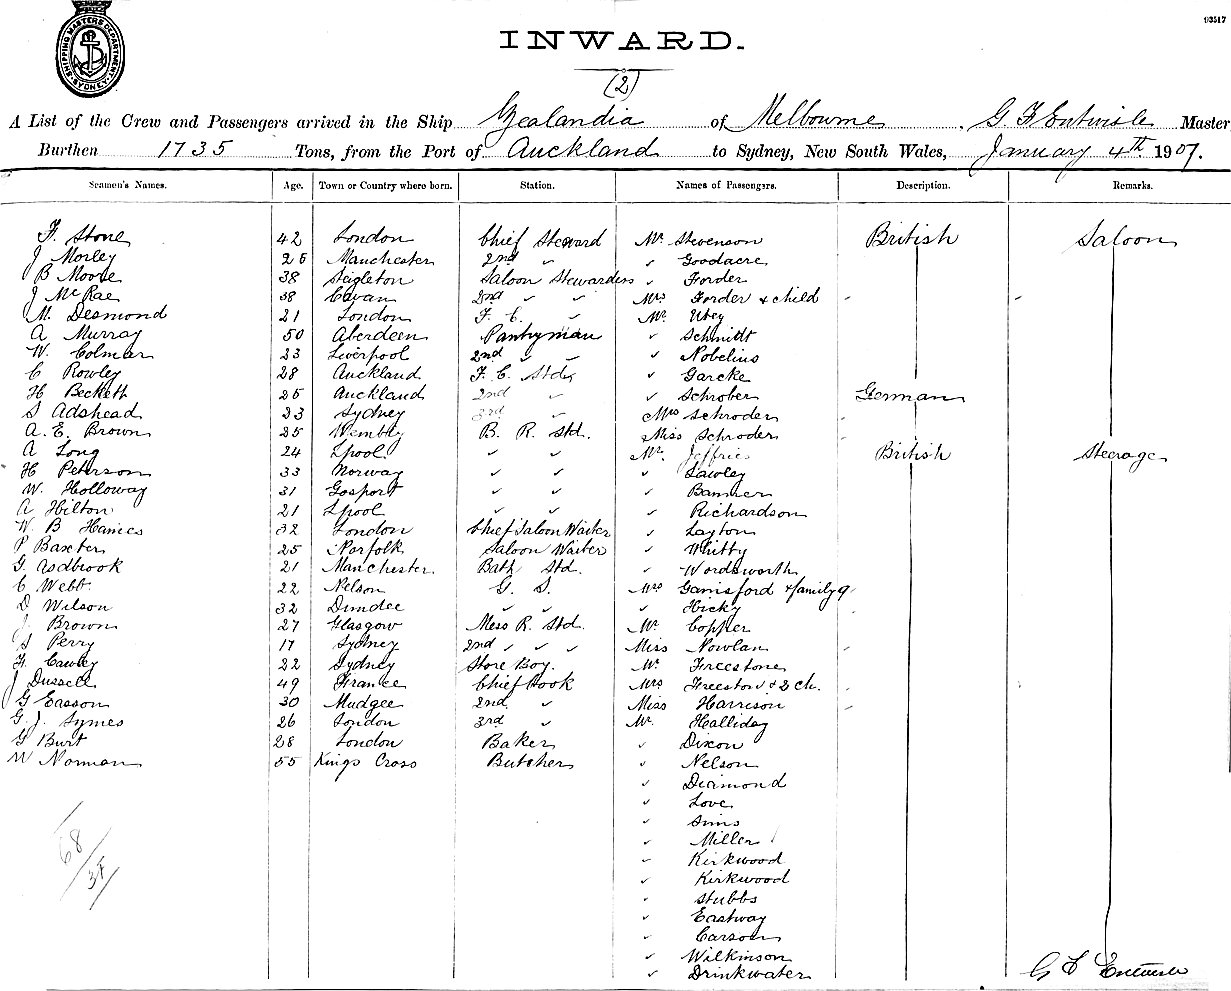 SHIPPING MASTERS DEPARTMENT. SYDNEY.
03517
INWARD.
(2)
A List of the Crew and Passengers arrived in the Ship Zealandia of Melbourne, G. F. Entwisle Master
Burthen 1735 Tons, from the Port of Auckland to Sydney, New South Wales, January 4th. 1907.
Seamen's Names. Age. Town or Country where born. Station. Names of Passengers. Description. Remarks.
F. Stone 42 London Chief Steward Mr Stevenson British Saloon
J Morley 26 Manchester 2nd ✓ ✓ Goodacre
B Moore 38 Saloon Stewardess ✓ Forder
J McRae 38 Cavan 2nd ✓ ✓ Mrs Forder & child
M. Desmond 21 London F. C. ✓ Mr Utey
A Murray 50 Aberdeen Pantryman ✓ Schmidt
W. Colmar 23 Liverpool 2nd ✓ ✓ ✓ Nobelius
C Rowley 28 Auckland F. C. Std. ✓ Garcke
H Beckett 25 Auckland 2nd ✓ ✓ Schrober German
S Adshead 23 Sydney 3rd ✓ Mrs Schroder
A. E. Brown 25 Wembly B. R. Std. Miss Schroder
A Long 24 Lpool ✓ ✓ Mr Jeffries British Steerage
H Peterson 33 Norway ✓ ✓ ✓ Lawley
W. Holloway 31 Gosport ✓ ✓ ✓ Banner
A Hilton 21 Lpool ✓ ✓ ✓ Richardson
W B Hames 32 London Chief Saloon Waiter ✓ Layton
P Baxter 25 Norfolk Saloon Waiter ✓ Whitty
G. Rodbrook 21 Manchester. Bath Std. ✓ Wordsworth
C Webb 22 Nelson G. S. Mrs Gainsford & family 9
D Wilson 32 Dundee ✓ ✓ ✓ Hicky
J. Brown 27 Glasgow Mess R. Std. Mr Copper
S Perry 17 Sydney 2nd ✓ ✓ ✓ Miss Nowlan
H. Cawley 22 Sydney Store Boy. Mr Freestone
J Dussell 49 France Chief Cook Mrs Freeston & 2 ch.
G Easson 30 Mudgee 2nd ✓ Miss Harrison
G. J. Symes 26 London 3rd ✓ Mr. Halliday
G Burt 28 London Baker ✓ Dixon
W Norman 55 Kings Cross Butcher ✓ Nelson
✓ Diamond
✓ Love
✓ Sims
✓ Miller
✓ Kirkwood
✓ Kirkwood
✓ Stubbs
✓ Eastway
✓ Carson
✓ Wilkinson
✓ Drinkwater
68/34
G F Entwisle